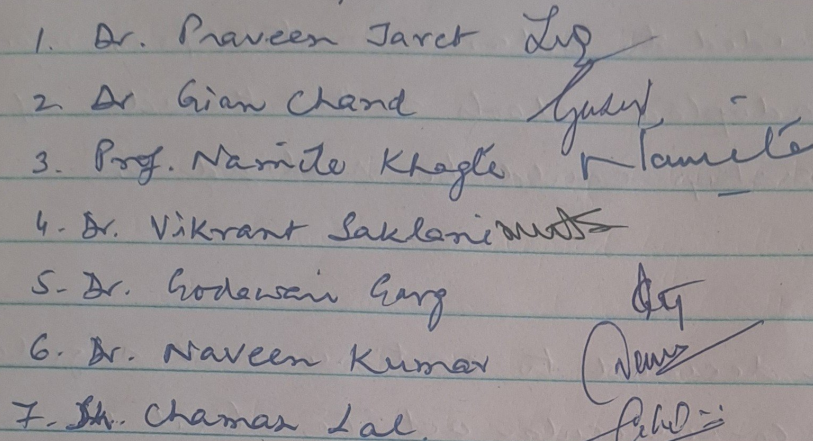 1. Dr. Praveen Jaret
2. Dr Gian Chand
3. Prof. Namita Khagta Namita
4. Dr. Vikrant Saklani
5. Dr. Godawari Garg
6. Dr. Naveen Kumar
7. Sh. Chaman Lal